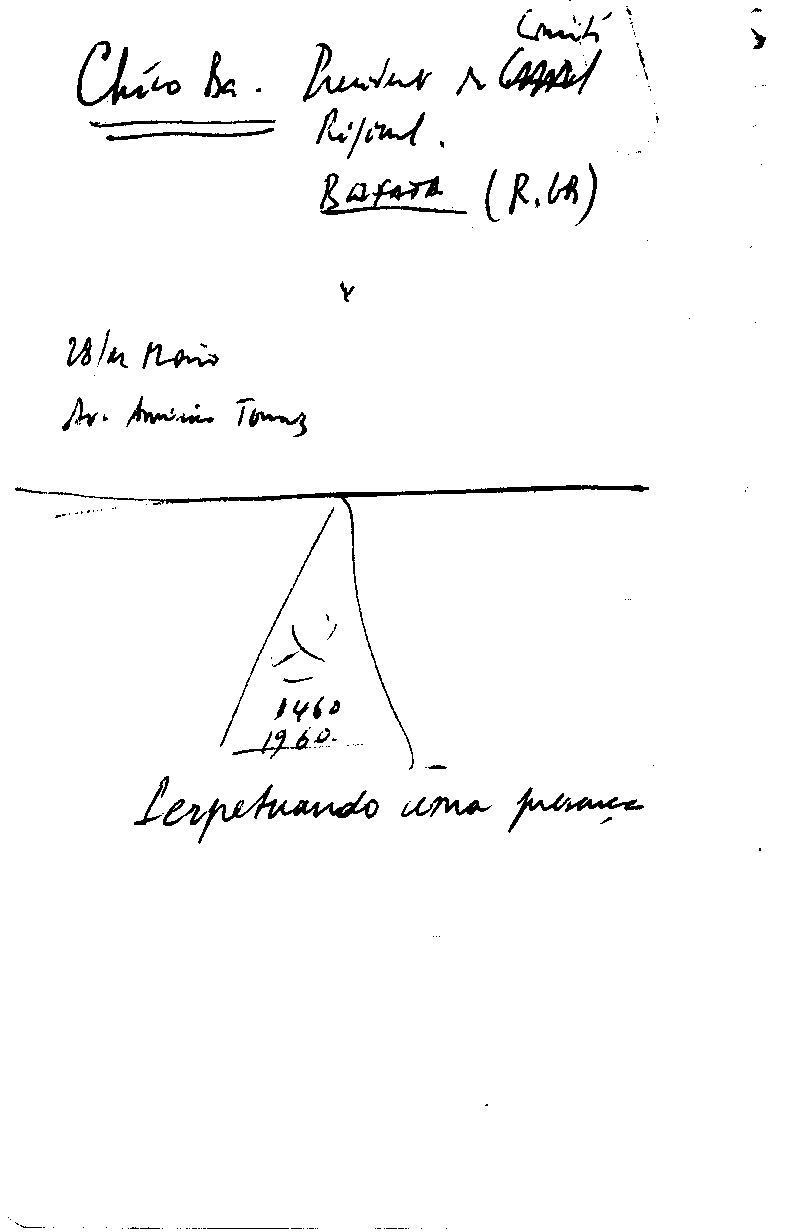 Comité
Chico Ba. President do
Regional.
BAFATA (R.GB)
28/ Maio
Av. Américo Tomaz
1460
1960.
Perpetuando uma presença